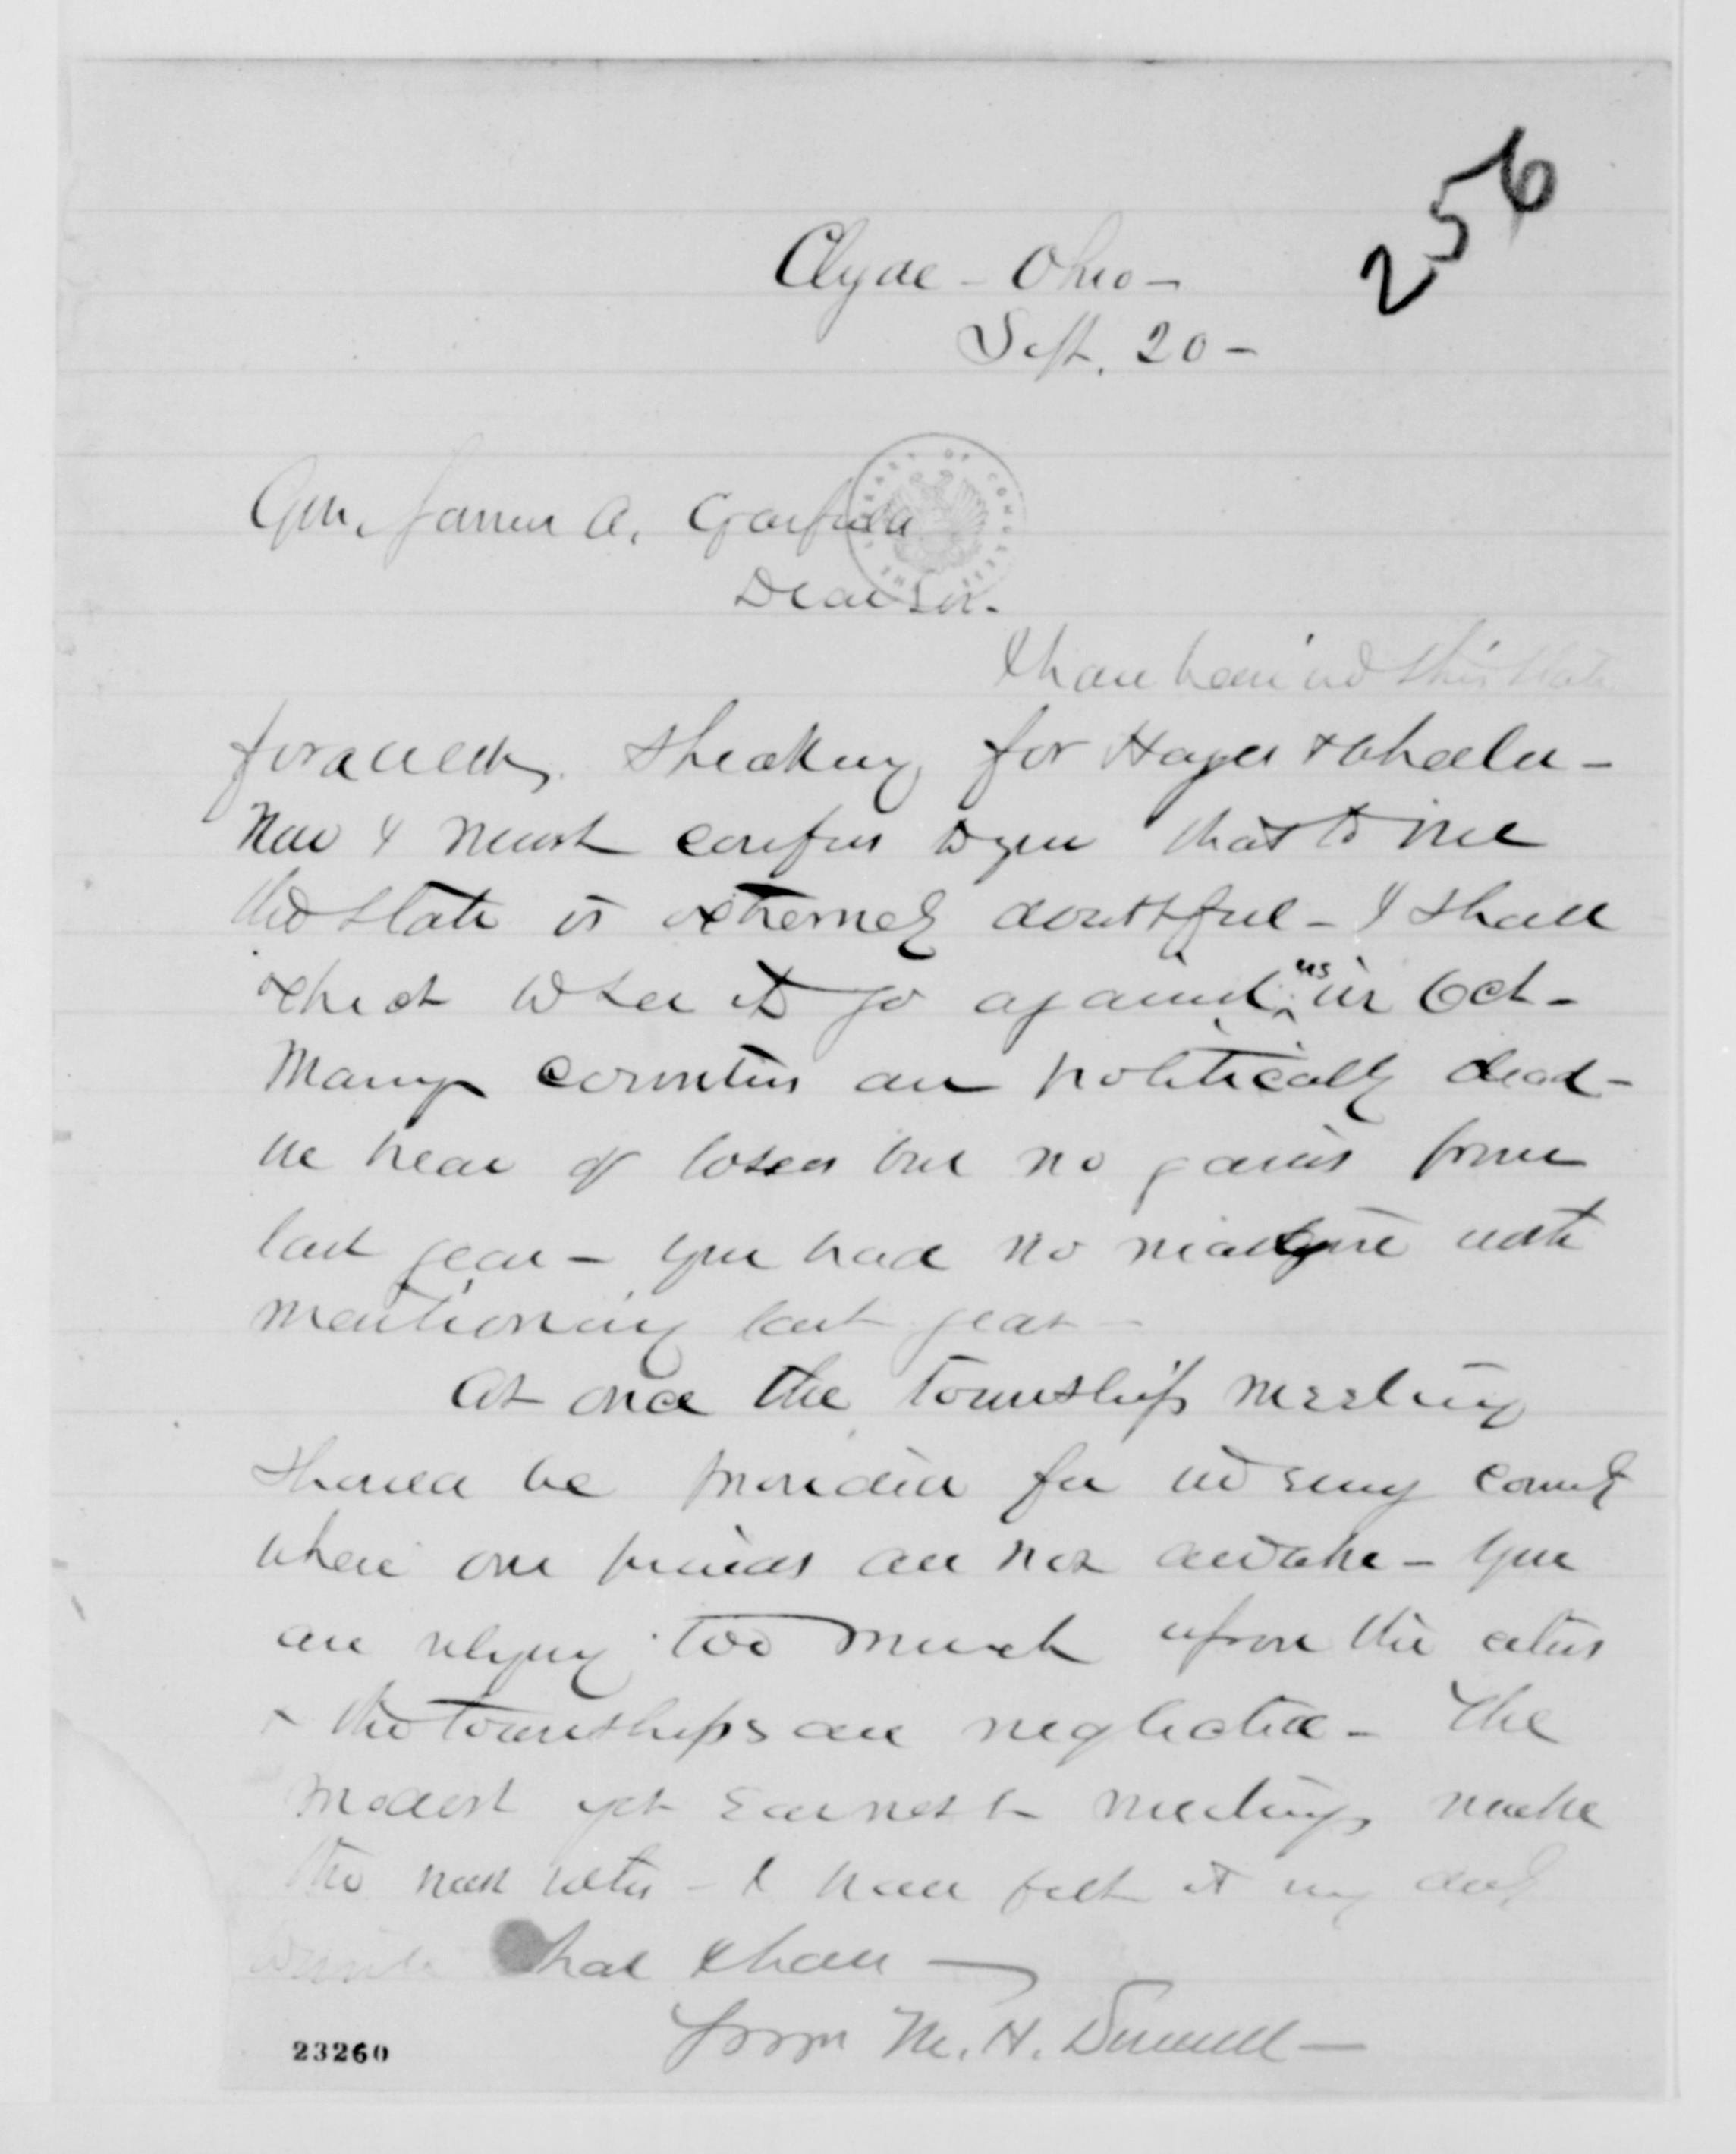 256
Clyde - Ohio -
Sept. 20 -
Gen. James A. Garfield
Dear Sir.
I have been in this State
for a week, speaking for Hayes & Wheeler -
Now I must confess to you that to me
the State is extremely doubtful - I shall
expect to see it go against us in Oct -
Many counties are politically dead -
We hear of losses but no gains from
last year - You had no majority worth
mentioning last year -
At once the township meeting
should be provided for in every county
where our friends are not awake - You
are relying too much upon the cities
& the townships are neglected - The
modest yet earnest meetings make
the votes - I have felt it my duty
to write what I have -
From M. H. Dunnell -
23260